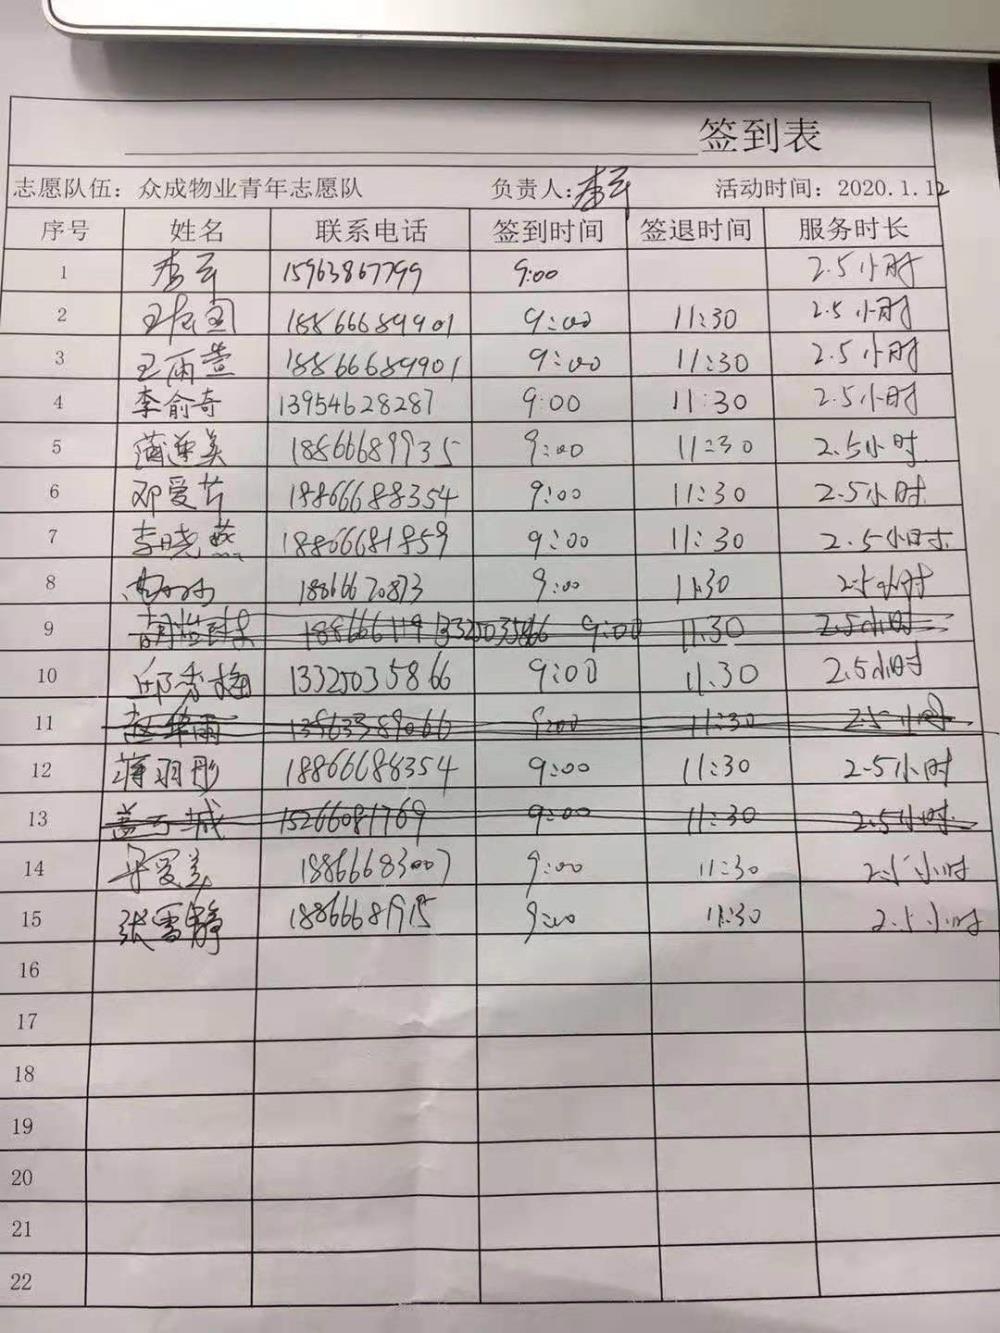 签到表
志愿队伍：众成物业青年志愿队 负责人：李云 活动时间：2020.1.12
序号 姓名 联系电话 签到时间 签退时间 服务时长
1 李云 15963867799 9:00 2.5小时
2 18866689901 9:00 11:30 2.5小时
3 王雨萱 18866689901 9:00 11:30 2.5小时
4 李俞奇 13954628287 9:00 11:30 2.5小时
5 18866689935 9:00 11:30 2.5小时
6 邓爱芹 18866688354 9:00 11:30 2.5小时
7 李晓燕 18866681859 9:00 11:30 2.5小时
8 9:00 11:30 2.5小时
9 13325035866 9:00 11:30 2.5小时
10 邱秀梅 13325035866 9:00 11:30 2.5小时
11 13963389066 9:00 11:30 2.5小时
12 蒋羽彤 18866688354 9:00 11:30 2.5小时
13 15266081769 9:00 11:30 2.5小时
14 18866683007 9:00 11:30 2.5小时
15 张雪静 18866681915 9:00 11:30 2.5小时
16
17
18
19
20
21
22